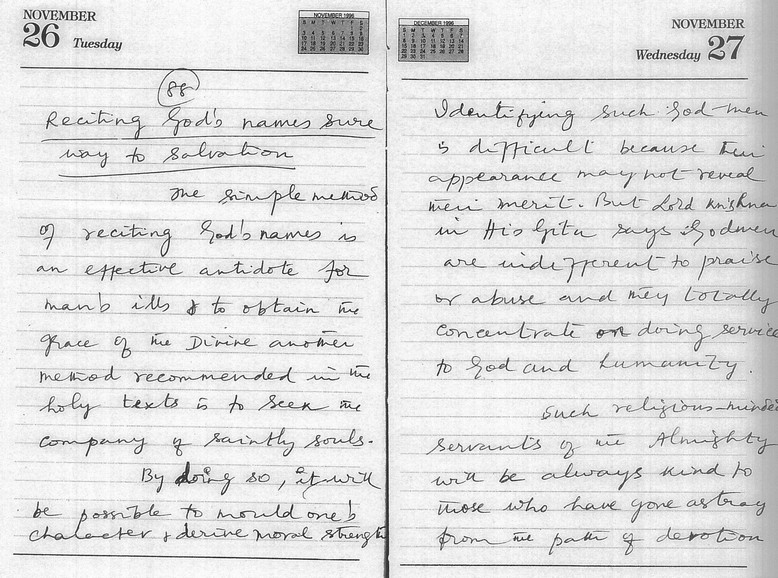 NOVEMBER
26 Tuesday
NOVEMBER 1996
S M T W T F S
88
Reciting God's names sure
way to salvation
The simple method
of reciting God's names is
an effective antidote for
man's ills & to obtain the
grace of the Divine another
method recommended in the
holy texts is to seek the
company of saintly souls.
By doing so, it will
be possible to mould one's
character & derive moral strength
DECEMBER 1996
S M T W T F S
NOVEMBER
Wednesday 27
Identifying such God-men
is difficult because their
appearance may not reveal
their merit. But Lord Krishna
in His Gita says Godmen
are indifferent to praise
or abuse and they totally
concentrate on doing service
to God and humanity.
Such religious-minded
servants of the Almighty
will be always kind to
those who have gone astray
from the path of devotion